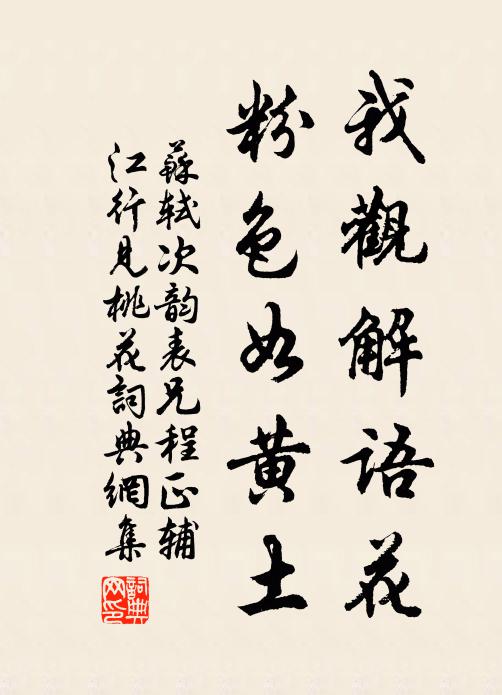 我觀解語花
粉色如黄土
蘇軾次韵表兄程正辅
江行見桃花詞典網集
詞典網印